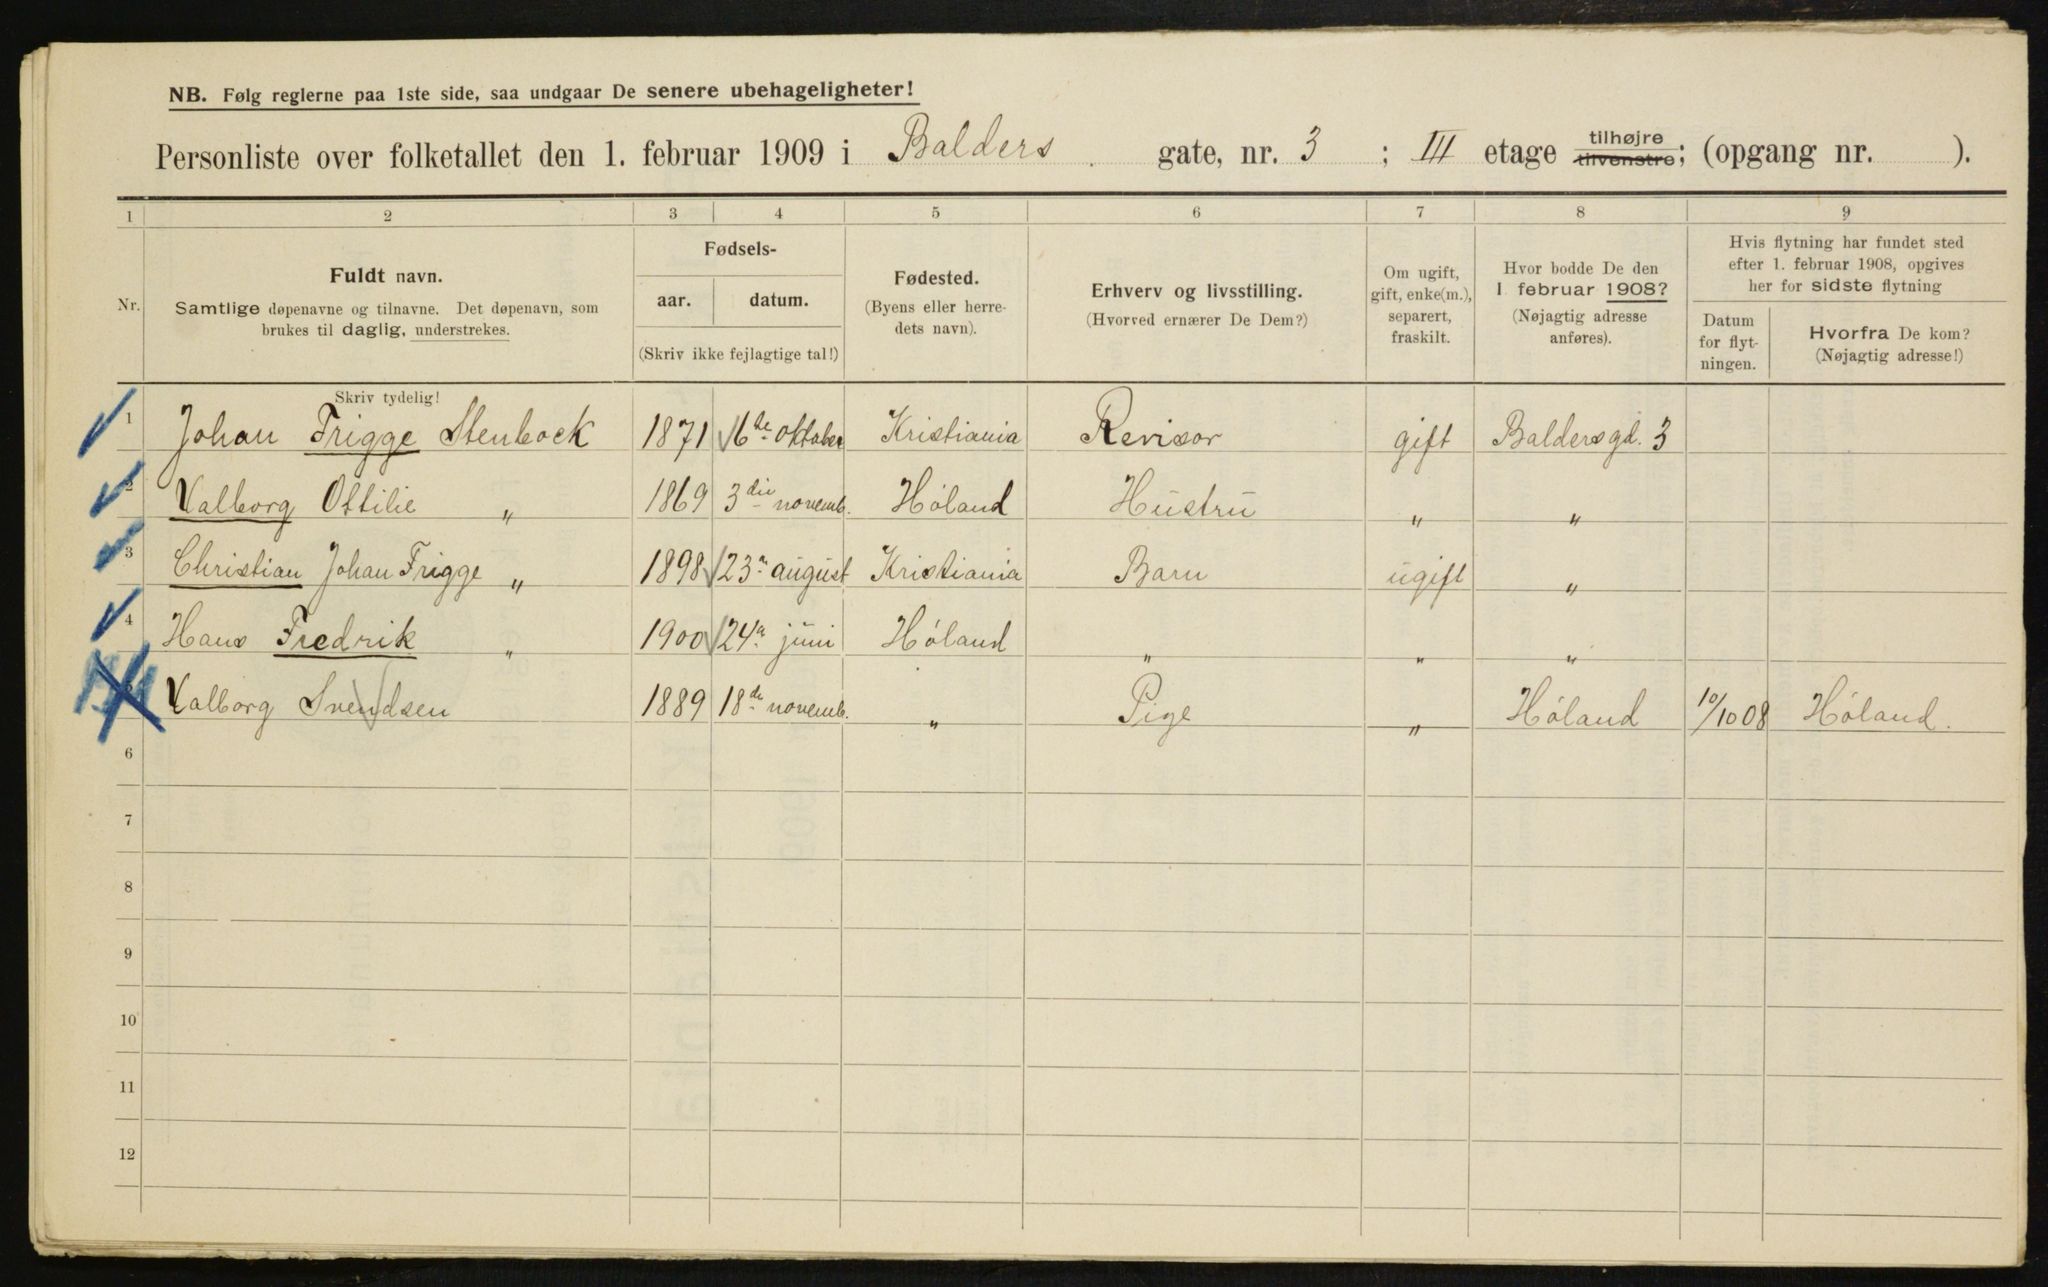 NB. Følg reglerne paa 1ste side, saa undgaar De senere ubehageligheter!
Personliste over folketallet den 1. februar 1909 i Balders gate, nr. 3 ; III etage tilhøjre tilvenstre; (opgang nr. ).
1 2 3 4 5 6 7 8 9
Nr.
Fuldt navn.
Samtlige døpenavne og tilnavne. Det døpenavn, som
brukes til daglig, understrekes.
Fødsels-
aar. datum.
(Skriv ikke fejlagtige tal!)
Fødested.
(Byens eller herre-
dets navn).
Erhverv og livsstilling.
(Hvorved ernærer De Dem?)
Om ugift,
gift, enke(m.),
separert,
fraskilt.
Hvor bodde De den
1. februar 1908?
(Nøjagtig adresse
anføres).
Hvis flytning har fundet sted
efter 1. februar 1908, opgives
her for sidste flytning
Datum
for flyt-
ningen.
Hvorfra De kom?
(Nøjagtig adresse!)
Skriv tydelig!
1 Johan Frigge Stenbock 1871 6te oktober Kristiania Revisor gift Baldersgd. 3
2 Valborg Ottilie „ 1869 3die novemb. Høland Hustru „ „
3 Christian Johan Frigge „ 1898 23. august Kristiania Barn ugift „
4 Hans Fredrik „ 1900 24. juni Høland „ „ „
5 Valborg Svendsen 1889 18de novemb. „ Pige „ Høland 10/10 08 Høland.
6
7
8
9
10
11
12